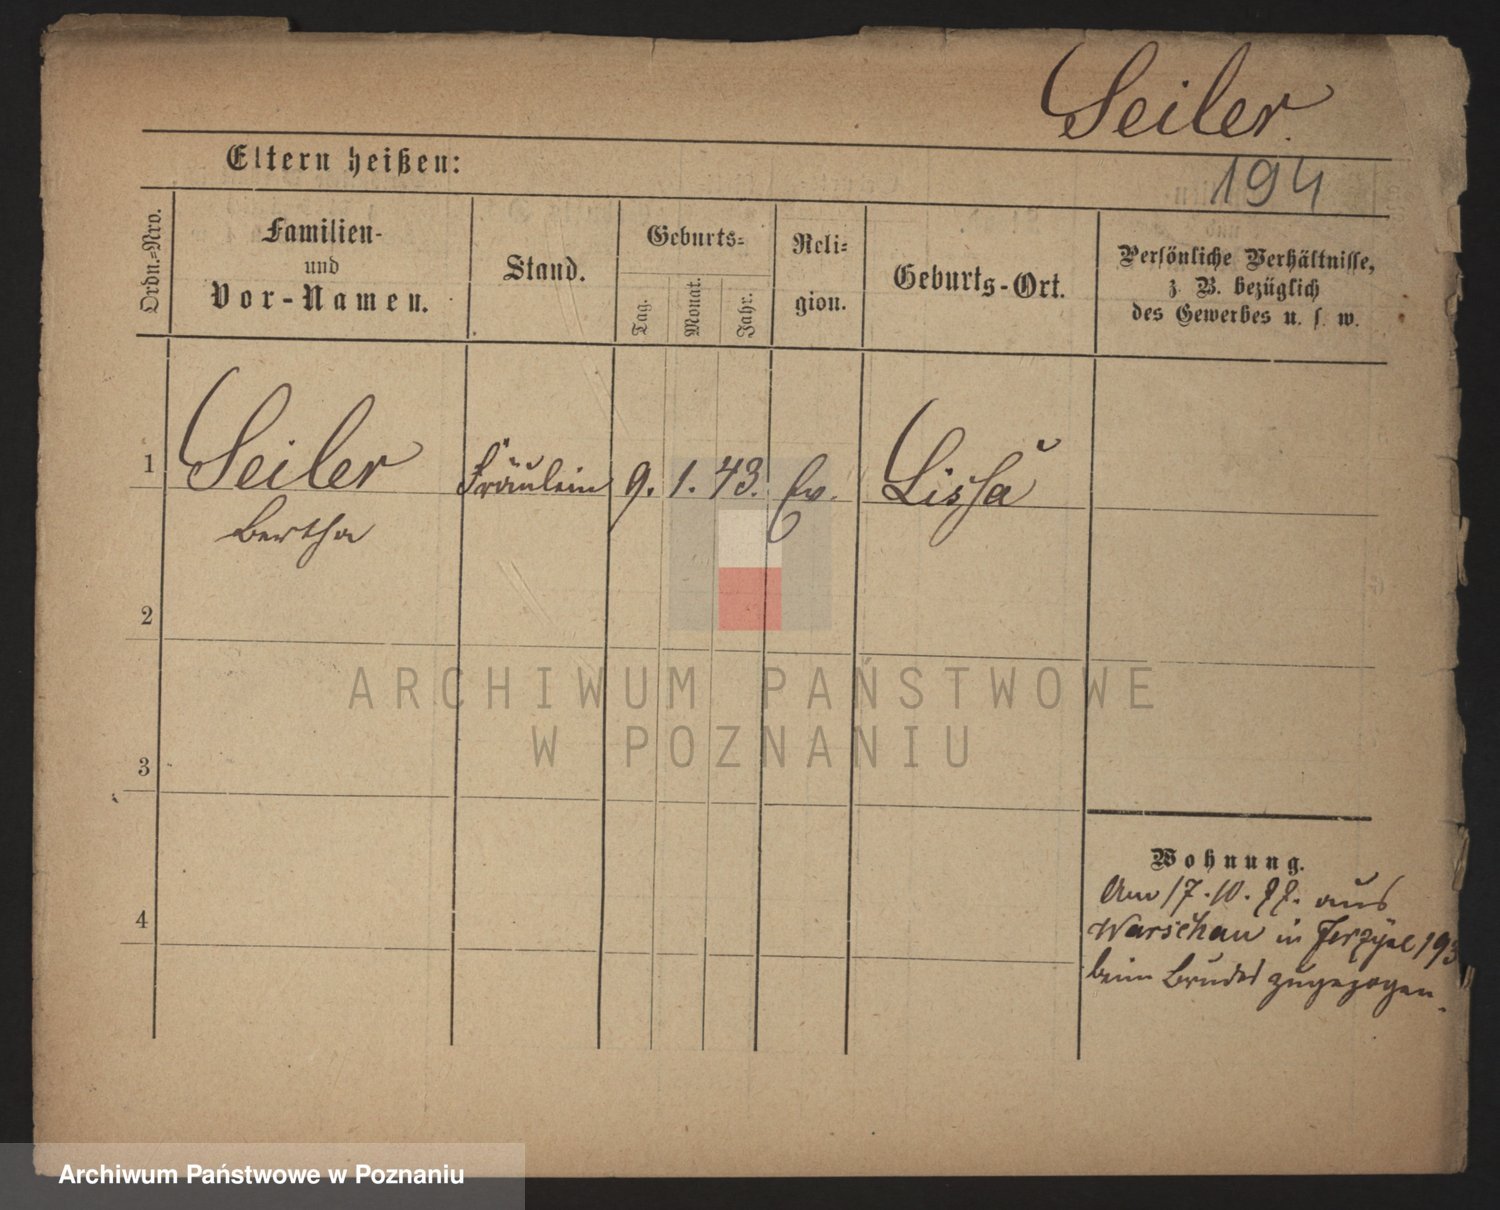 Seiler.
194
Eltern heißen:
Ordn.=Nro.
Familien-
und
Vor-Namen.
Stand.
Geburts=
Tag.
Monat.
Jahr.
Reli=
gion.
Geburts-Ort.
Persönliche Verhältnisse,
z. B. bezüglich
des Gewerbes u. s. w.
1 Seiler Fräulein 9. 1. 43. Ev. Lissa
Bertha
2
3
4
Wohnung.
Am 17.10. aus
Warschau in 193
beim Bruder zugezogen.
ARCHIWUM PAŃSTWOWE
W POZNANIU
Archiwum Państwowe w Poznaniu